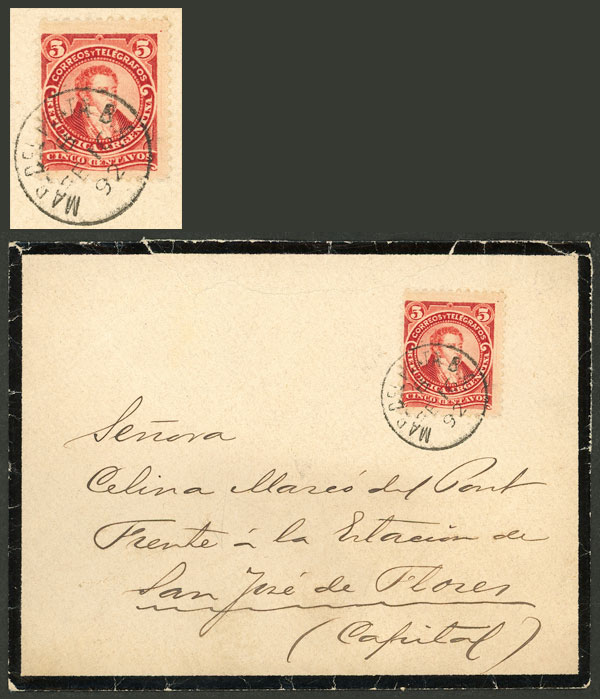 5 5
CORREOS Y TELEGRAFOS
REPUBLICA ARGENTINA
CINCO CENTAVOS
MAR DEL PLATA B
92
5 5
CORREOS Y TELEGRAFOS
REPUBLICA ARGENTINA
CINCO CENTAVOS
MAR DEL PLATA B
92
Señora
Celina Marcó del Pont
Frente á la Estación de
San José de Flores
(Capital)